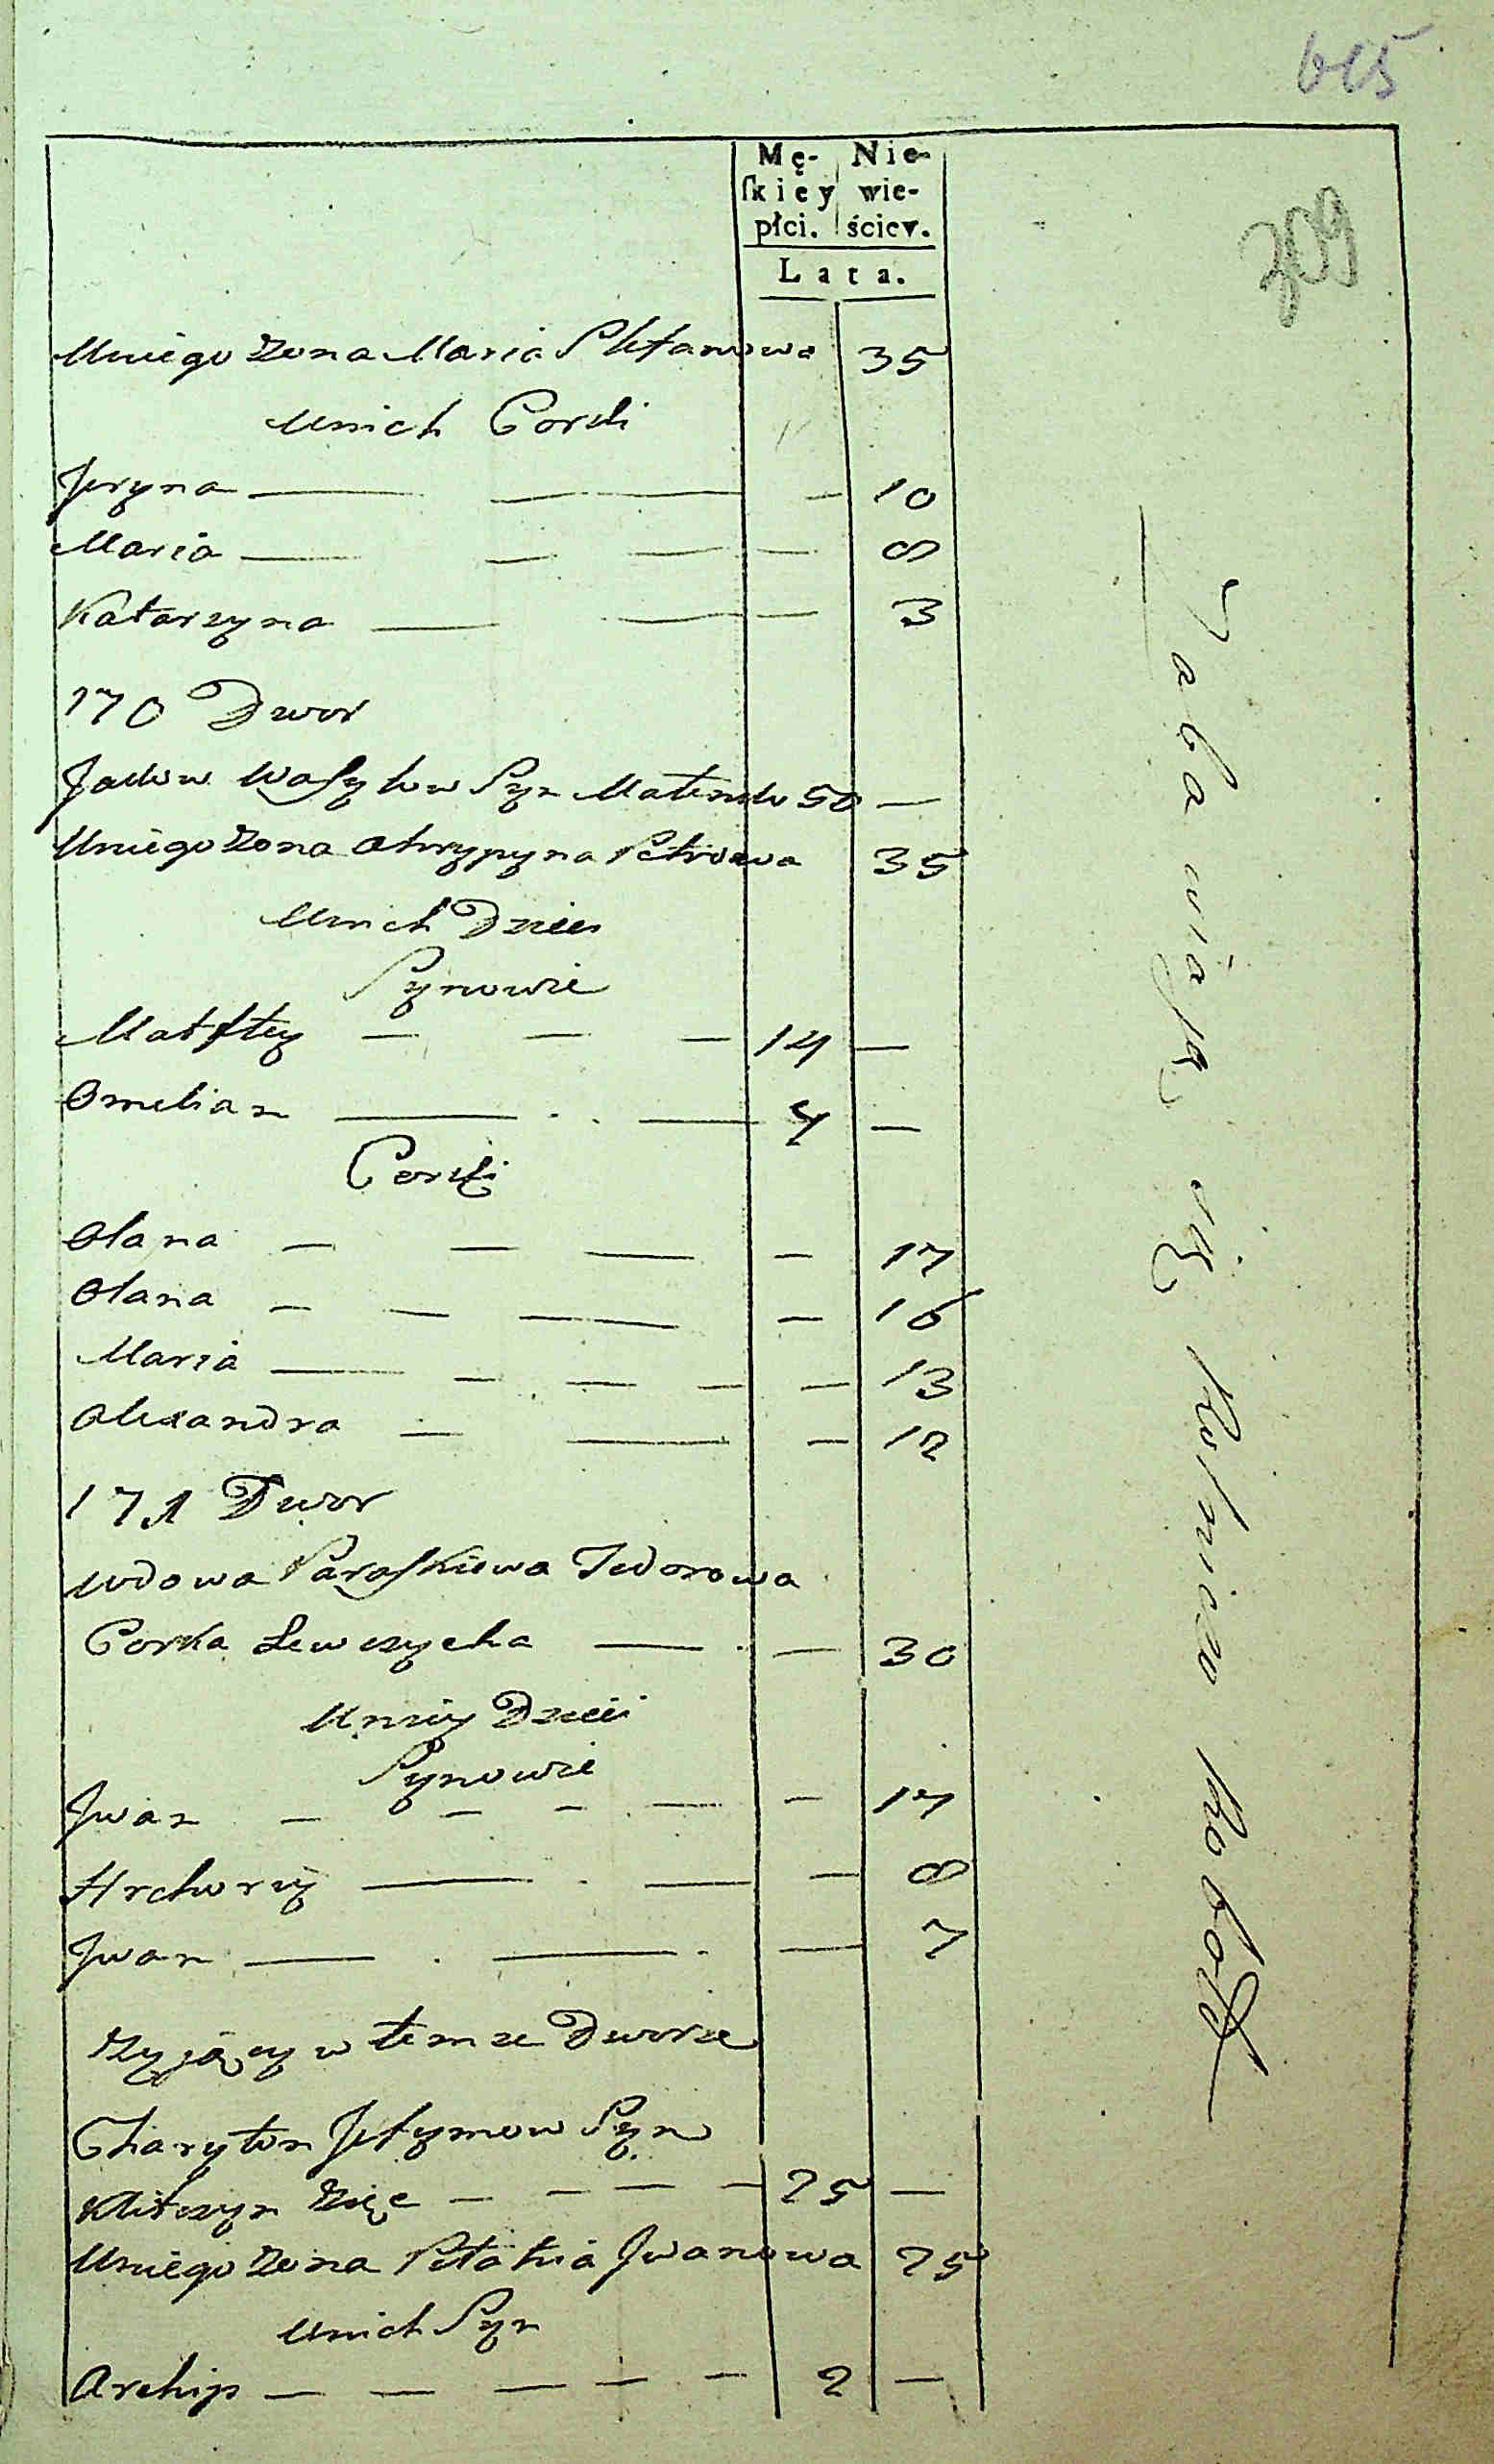 615
309
Mę- Nie-
ſkiey wie-
płci. ściey.
Lata.
Uniego Zona Maria Stefanowa 35
Unich Corki
Jryna — — — 10
Maria — — — — 8
Katarzyna — — — 3
170 Dwor
Jakow Wasylow Syn 50 —
Uniego Zona Ahrypyna Petrowa 35
Unich Dzieci
Synowie
Matftey — — — 14 —
Omelian — — 4 —
Corki
Olana — — — — 17
Olana — — — — 16
Maria — — — — — 13
Alexandra — — — 12
171 Dwor
Wdowa Paraskiewa Fedorowa
Corka Lewczycha — — 30
Uniey Dzieci
Synowie
Jwan — — — — — 17
Hrehorey — — — 8
Jwan — — — 7
Zyjący w temze Dworze
Charyton Jefymow Syn
Zięc — — — — 25 —
Uniego Zona Pełahia Jwanowa 25
Unich Syn
Archip — — — — — 2 —
Zabawia się Rolniczo Robotą